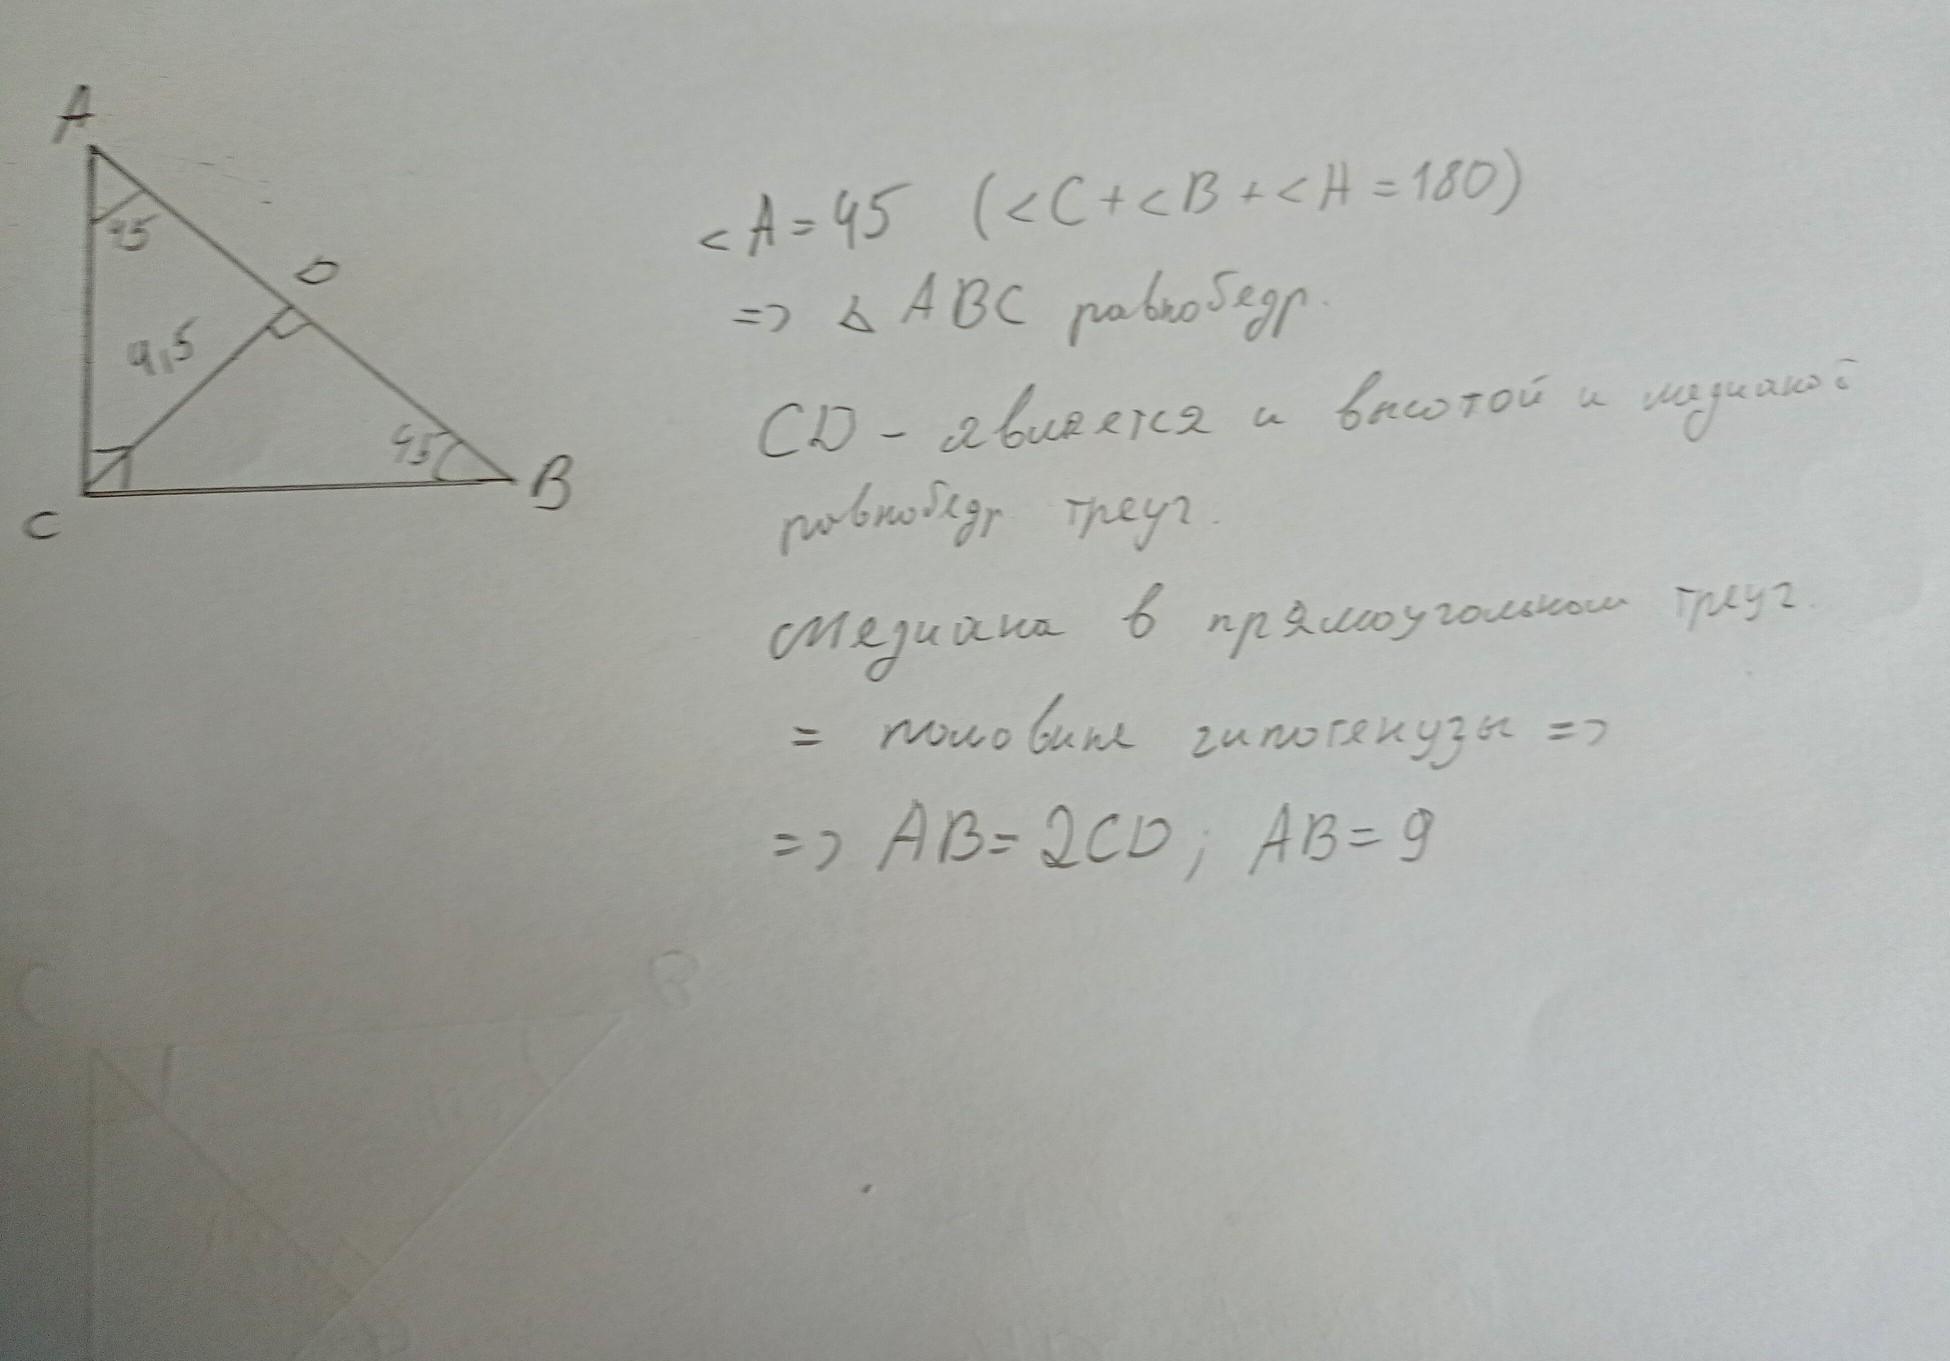 A
45
D
4,5
45
B
C
<A=45 (<C+<B+<A=180)
=> △ ABC равнобедр.
CD - является и высотой и медианой
равнобедр. треуг.
Медиана в прямоугольном треуг.
= половине гипотенузы =>
=> AB=2CD; AB=9
C
B